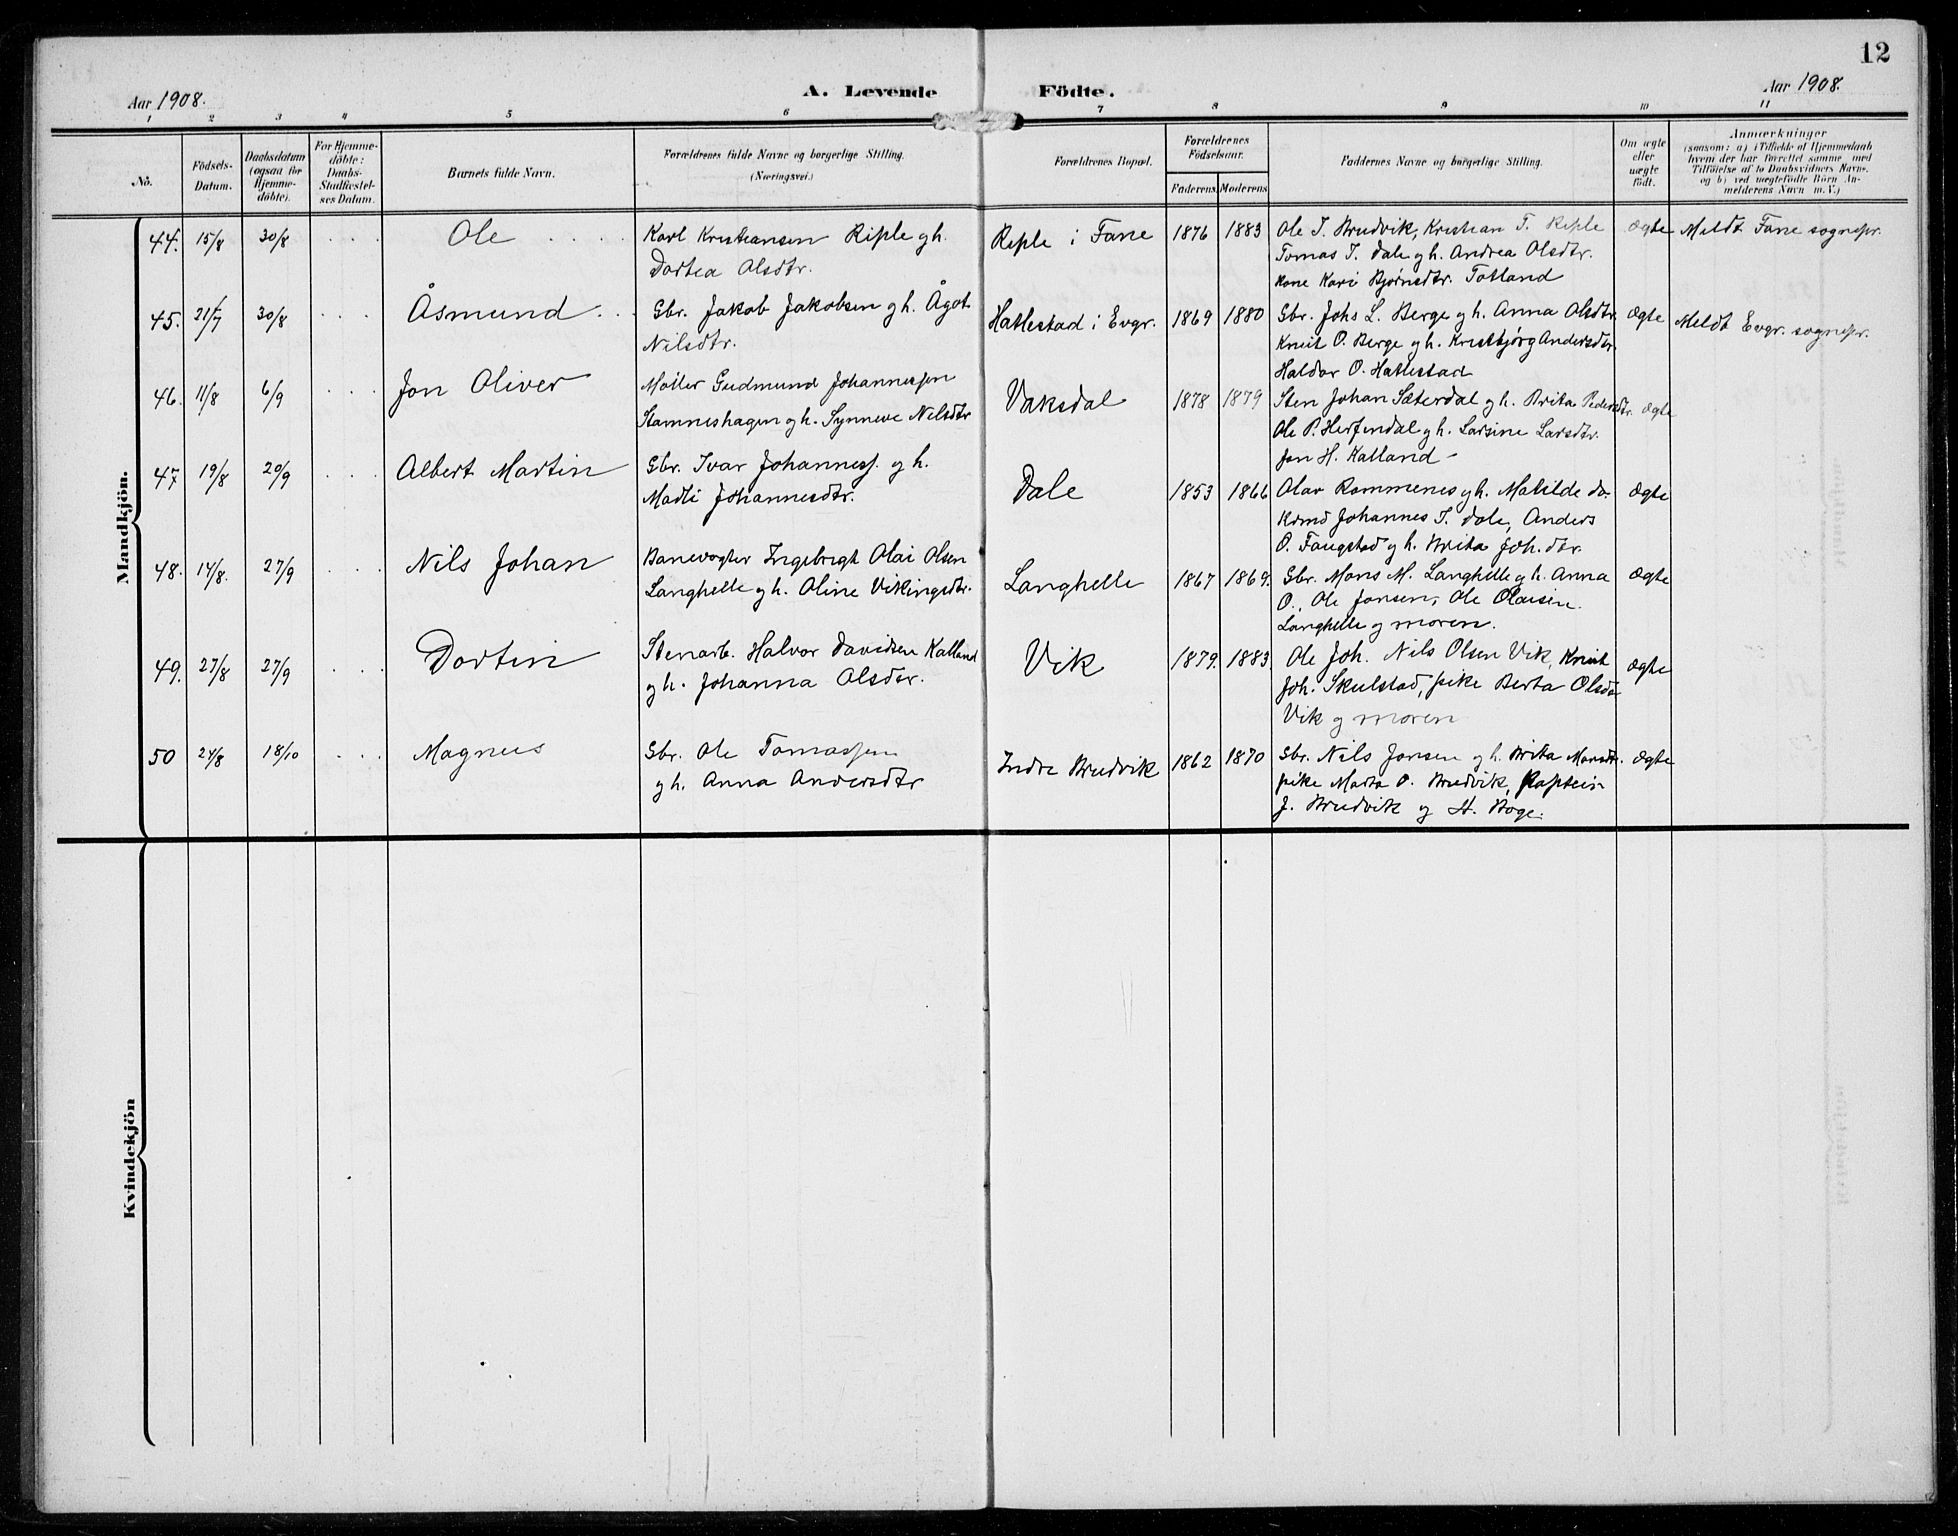 12
Aar 1908. A. Levende Födte. Aar 1908.
1 2 3 4 5 6 7 8 9 10 11
No.
Födsels-
Datum.
Daabsdatum
(ogsaa for
Hjemme-
döbte).
For Hjemme-
döbte:
Daabs-
Stadfæstel-
ses Datum.
Barnets fulde Navn.
Forældrenes fulde Navne og borgerlige Stilling.
(Næringsvei.)
Forældrenes Bopæl.
Forældrenes
Födselsaar.
Faderens. Moderens.
Faddernes Navne og borgerlige Stilling.
Om ægte
eller
uægte
födt.
Anmærkninger
(saasom: a) i Tilfælde af Hjemmedaab
hvem der har forrettet samme, med
Tilföielse af to Daabsvidners Navne,
og b) ved uægtefödte Börn An-
melderens Navn m. V.)
Mandkjön.
44. 15/8 30/8 Ole
Karl Kristiansen Riple gh.
Dortea Olsdtr.
Riple i Fane 1876 1883
Ole T. Brudvik, Kristian T. Riple
Tomas I. Dale gh. Andrea Olsdtr.
Kone Kari Bjørnsdtr. Totland
ægte Meldt Fane sognepr.
45. 21/7 30/8 Åsmund
Gbr. Jakob Jakobsen gh. Ågot
Nilsdtr.
Hatlestad i Evgr. 1869 1880
Gbr. Johs L. Berge gh. Anna Olsdtr.
Knut O. Berge gh. Kristbjørg Andersdtr.
Haldor O. Hatlestad
ægte Meldt Evgr. sognepr.
46. 11/8 6/9 Jon Oliver
Møller Gudmund Johannessen
Stamneshagen gh. Synneve Nilsdtr
Vaksdal 1878 1879
Sten Johan Sæterdal gh. Brita Pedersdtr.
Ole P. Herfindal gh. Larsine Larsdtr.
Jon H. Kalland -
ægte
47 19/8 20/9 Albert Martin
Gbr. Ivar Johanness. gh.
Madli Johannesdtr.
Dale 1853 1866
Olav Rommenes gh. Matilde do.
Krmd Johannes I. Dale, Anders
O. Fangstad gh. Brita Joh.dtr.
ægte
48. 14/8. 27/9 Nils Johan
Banevogter Ingebrigt Olai Olsen
Langhelle gh. Oline Vikingsdtr.
Langhelle 1867 1869.
Gbr. Mons M. Langhelle gh. Anna
O., Ole Jonsen, Ole Olaisen
Langhelle og moren.
ægte
49. 27/8 27/9 Dortin
Stenarb. Halvor Davidsen Kalland
gh. Johanna Olsdtr.
Vik 1879. 1883
Ole Joh. Nils Olsen Vik, Knut
Joh. Skulstad, pike Berta Olsdtr
Vik og moren
ægte
50 24/8 18/10 Magnus
Gbr. Ole Tomassen
gh. Anna Andersdtr
Indre Brudvik 1862 1870
Gbr. Nils Jonsen gh. Brita Monsdtr.
pike Marta O. Brudvik, Kaptein
J. Brudvik og H. Boge.
ægte
Kvindekjön